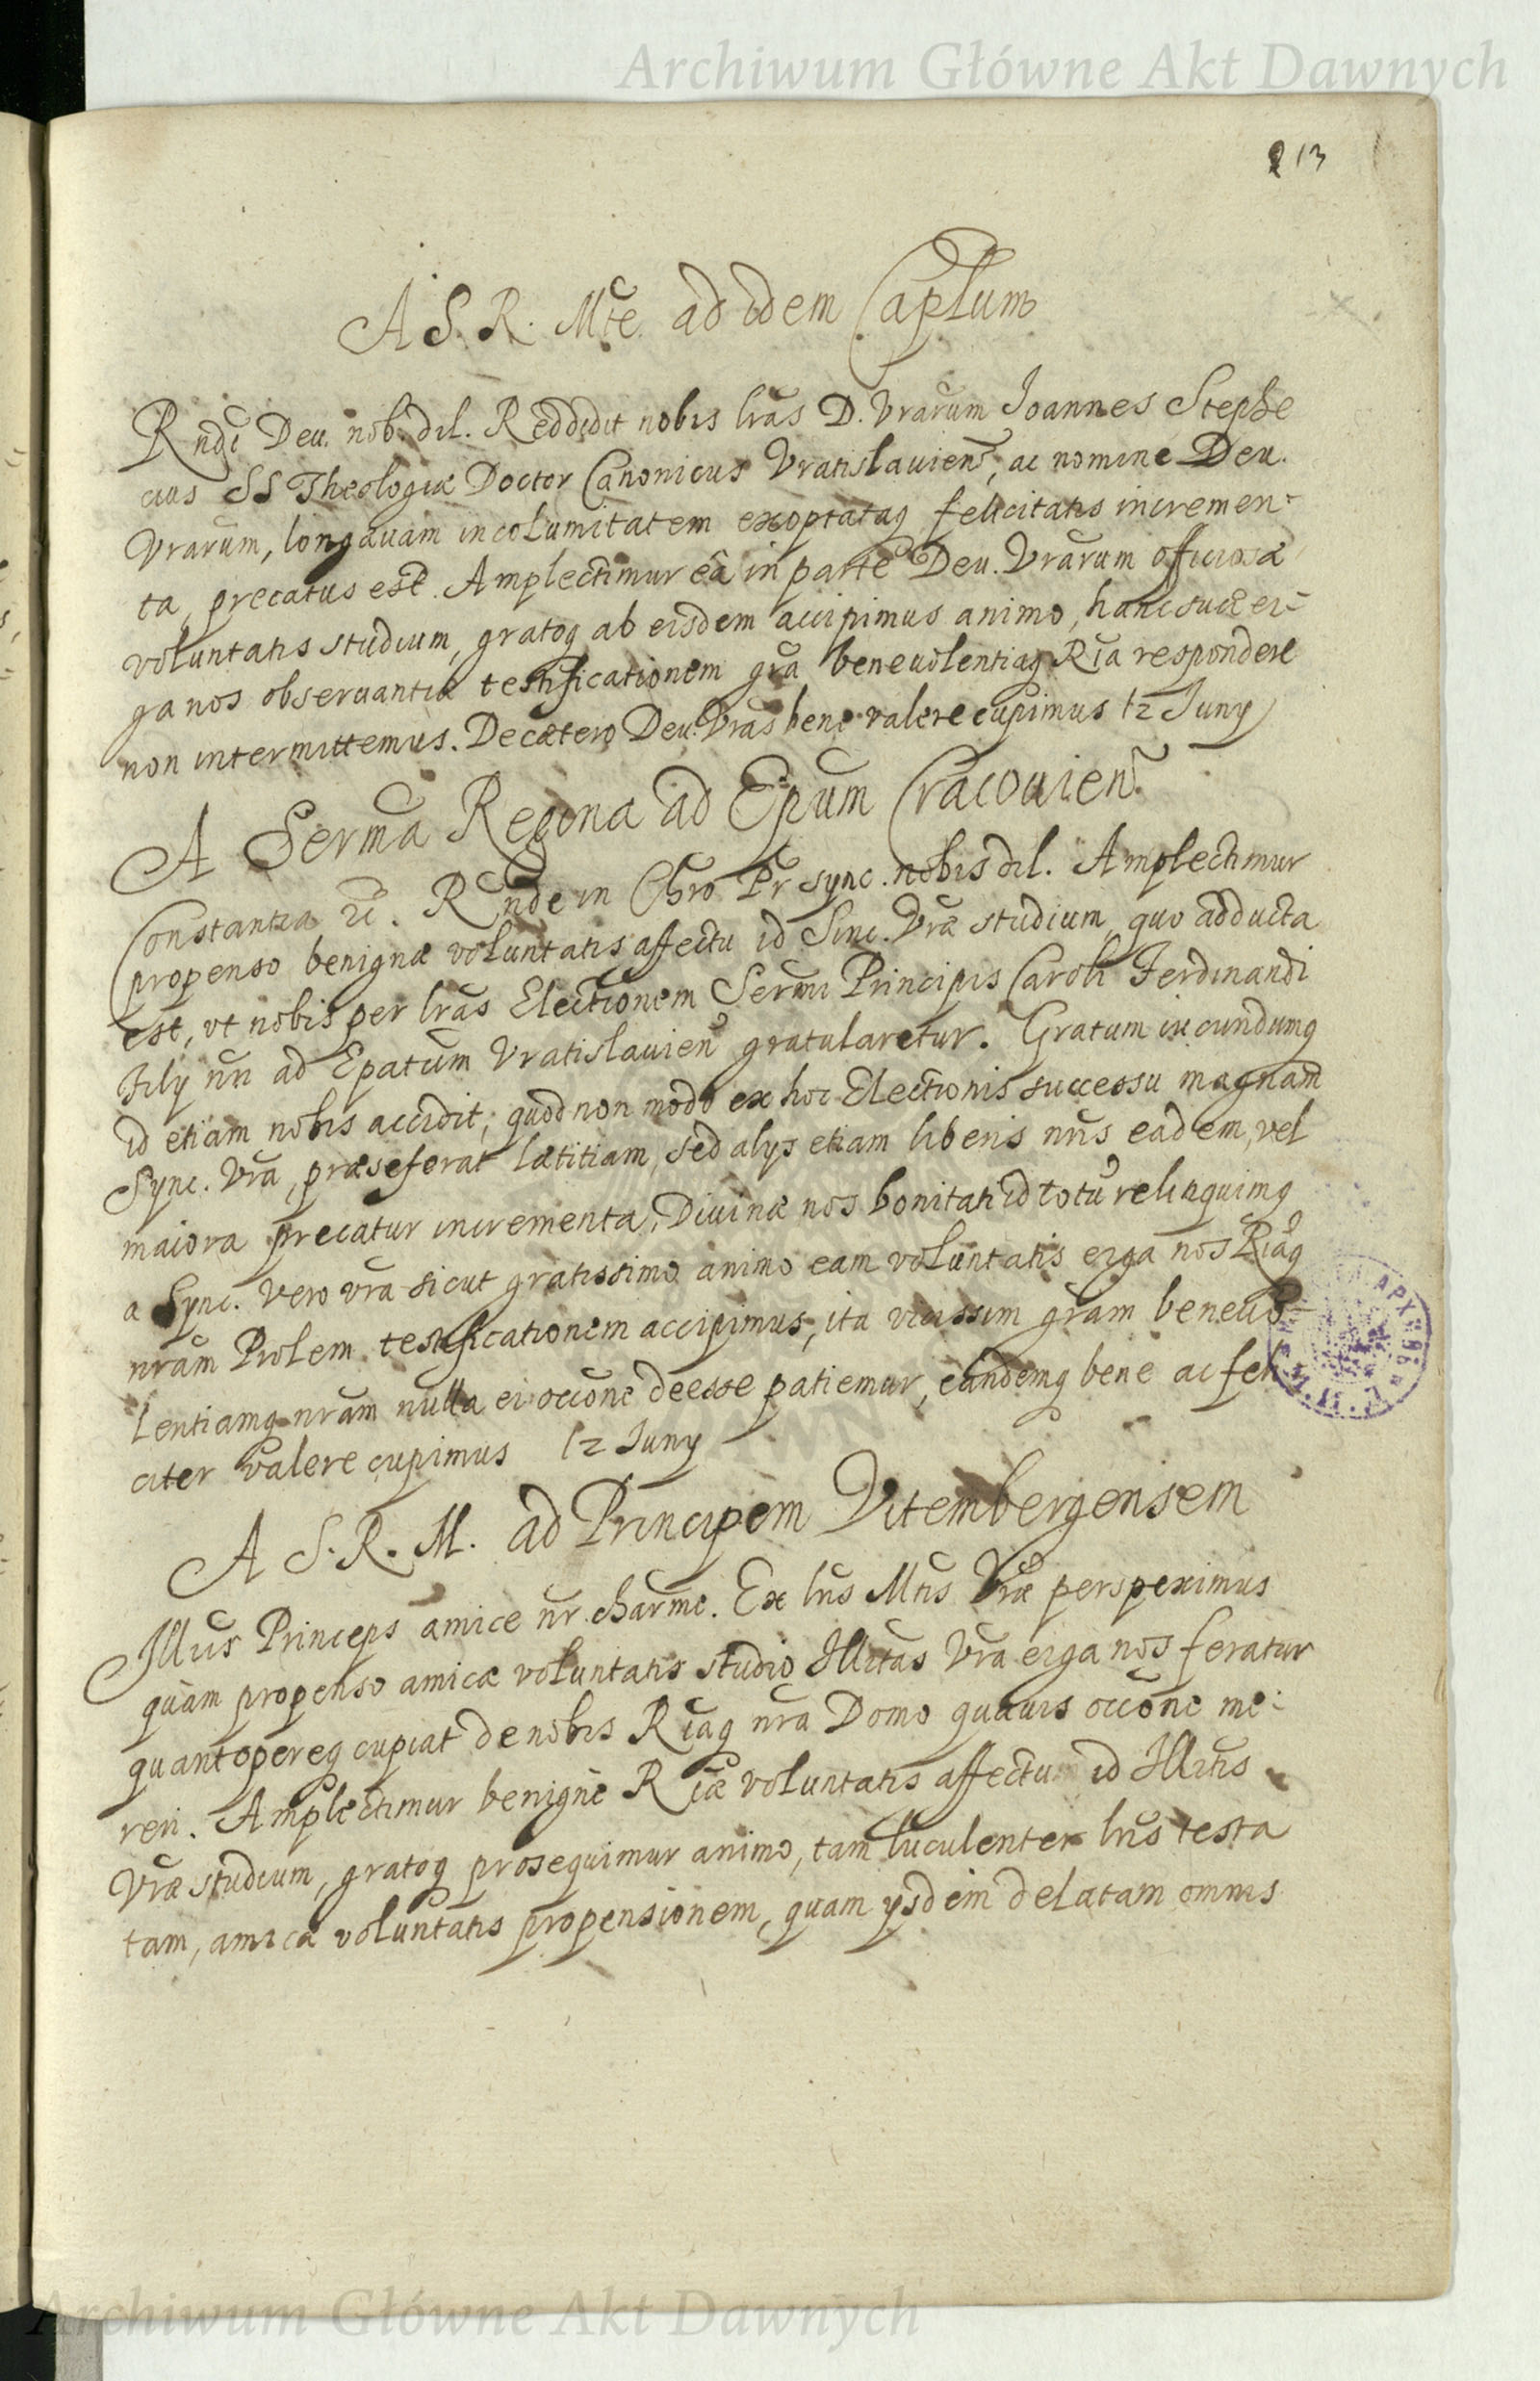 Archiwum Główne Akt Dawnych
213
A S. R. Mte ad idem Caplum
Rndi Deu. nob. dil. Reddidit nobis lras D. Vrarum Ioannes Stephe
cius SS Theologiæ Doctor Canonicus Vratislauien, ac nomine Deu.
Vrarum, longæuam incolumitatem exoptatæq felicitatis incremen-
ta, precatus est. Amplectimur eâ in parte Deu. Vrarum officiosæ
voluntatis studium, gratoq ab eisdem accipimus animo, hanc suæ er-
ga nos obseruantiæ testificationem gra beneuolentiaq Ria respondere
non intermittemus. De cætero Deu. Vras bene valere cupimus 12 Iuny
A Serma Regina ad Epum Cracouien.
Constantia &c. Rnde in Chro Pr sync. nobis dil. Amplectimur
propenso benignæ voluntatis affectu id Sinc. Vræ studium, quo adducta
est, vt nobis per lras Electionem Sermi Principis Caroli Ferdinandi
Fily nri ad Epatum Vratislauien gratularetur. Gratum iucundumq
id etiam nobis accidit, quod non modo ex hoc Electionis successu magnam
Sync. Vra, præseferat lætitiam, sed alys etiam liberis nris eadem, vel
maiora precatur incrementa, Diuinæ nos bonitati id totu relinquimq
a Sync. vero vra sicut gratissimo animo eam voluntatis erga nos Riaq
nram Prolem testificationem accipimus, ita vicissim gram beneuo-
lentiamq nram nulla ei occone deesse patiemur, eandemq bene ac feli
citer valere cupimus 12 Iuny
A S. R. M. ad Principem Vitembergensem
Illris Princeps amice nr charme. Ex lris Mtis Vræ perspeximus
quam propenso amicæ voluntatis studio Illritas Vra erga nos feratur
quantopereq cupiat de nobis Riaq nra Domo quauis occone me-
reri. Amplectimur benigne Riæ voluntatis affectu id Illritis
Vræ studium, gratoq prosequimur animo, tam luculenter lris testa
tam, amicæ voluntatis propensionem, quam ysdem delatam omnis
Archiwum Główne Akt Dawnych